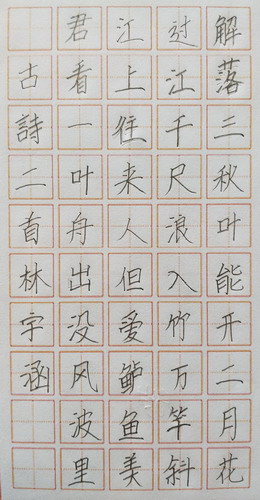 解落三秋叶能开二月花
过江千尺浪入竹万竿斜
江上往来人但爱鲈鱼美
君看一叶舟出没风波里
古詩二首林宇涵